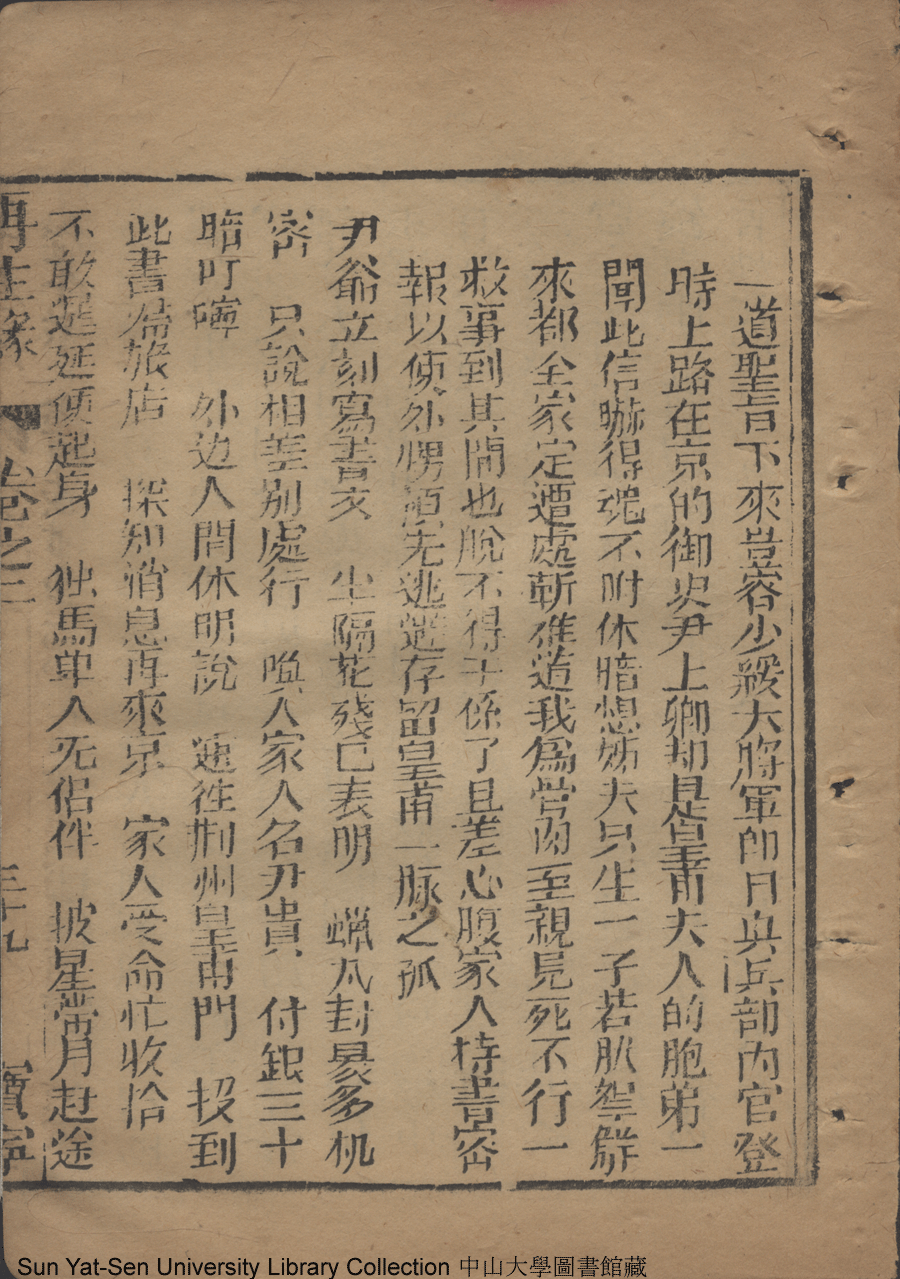 一道聖旨下來豈容少緩大將軍即日與兵部內官登
時上路在京的御史尹上卿却是皇甫夫人的胞弟一
聞此信嚇得魂不附休暗想姊夫只生一子若肰拏觧
來都全家定遭處斬难道我爲骨肉至親見死不行一
救事到其間也脫不得干係了且差心腹家人持書密
報以使外甥預先逃避存留皇甫一脉之孤
尹爺立刻寫書文 尘隔花殘已表明 蠟凡封裹多机
密 只說相差别處行 喚入家人名尹貴 付銀三十
暗叮嚀 外边人問休明說 速徃荆州皇甫門 投到
此書落旅店 探知消息再來京 家人受命忙收拾
不敢遲延便起身 独馬单人旡侣伴 披星帶月赶途
再生緣 卷之三 三十九 寶寧
Sun Yat-Sen University Library Collection 中山大學圖書館藏